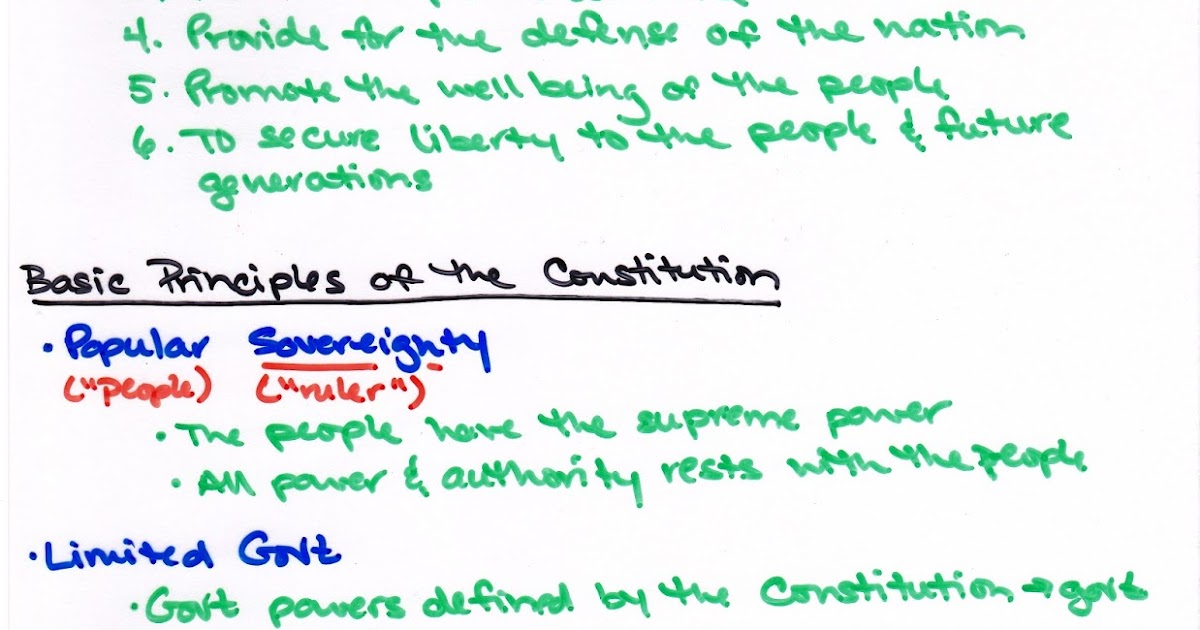 4. Provide for the defense of the nation
5. Promote the well being of the people
6. To secure liberty to the people & future
generations
Basic Principles of the Constitution
• Popular Sovereignty
("people) ("ruler")
• The people have the supreme power
• All power & authority rests with the people
• Limited Govt
• Govt powers defined by the Constitution → govt